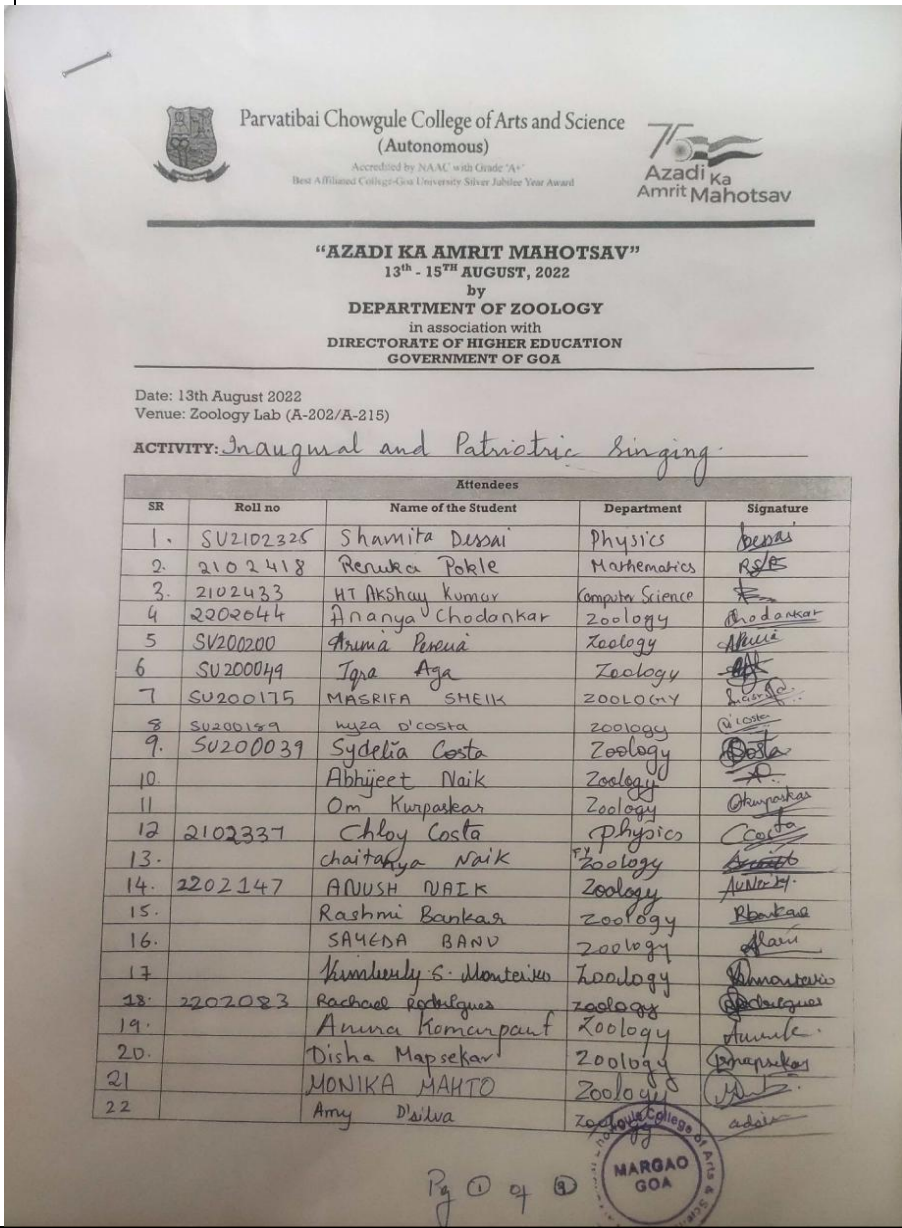 Parvatibai Chowgule College of Arts and Science
(Autonomous)
Accredited by NAAC with Grade "A+"
Best Affiliated College-Goa University Silver Jubilee Year Award
75
Azadi Ka
Amrit Mahotsav
"AZADI KA AMRIT MAHOTSAV"
13th - 15TH AUGUST, 2022
by
DEPARTMENT OF ZOOLOGY
in association with
DIRECTORATE OF HIGHER EDUCATION
GOVERNMENT OF GOA
Date: 13th August 2022
Venue: Zoology Lab (A-202/A-215)
ACTIVITY: Inaugural and Patriotric Singing.
Attendees
SR Roll no Name of the Student Department Signature
1. SU2102325 Shamita Dessai Physics Dessai
2. 2102418 Renuka Pokle Mathematics
3. 2102433 HT Akshay Kumar Computer Science
4 2202044 Ananya Chodankar Zoology Chodankar
5 SU200200 Zoology
6 SU200049 Iqra Aga Zoology
7 SU200175 MASRIFA SHEIK ZOOLOGY
8 SU200189 D'costa zoology D'costa
9. SU200039 Sydelia Costa Zoology Costa
10. Abhijeet Naik Zoology
11 Om Kurpaskar Zoology Okurpaskar
12 2102337 Chloy Costa Physics Ccosta
13. Chaitanya Naik FY Zoology
14. 2202147 ANUSH NAIK Zoology
15. Rashmi Bankar Zoology Rbankar
16. SAYEDA BANU Zoology
17 Kimberly S. Monteiro Zoology Kmonteiro
18. 2202083 Rachael Rodrigues zoology Rodrigues
19. Komarpant Zoology
20. Disha Mapsekar Zoology Dmapsekar
21 MONIKA MAHTO Zoology
22 Amy D'silva Zoology
Chowgule College of Arts & Science
MARGAO
GOA
Pg 1 of